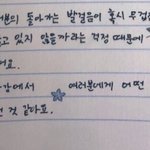 러분의 돌아가는 발걸음이 혹시 무겁
고 있지 않을까라는 걱정 때문에
어요.
간에서 여러분에게 어떤
것 같다고.